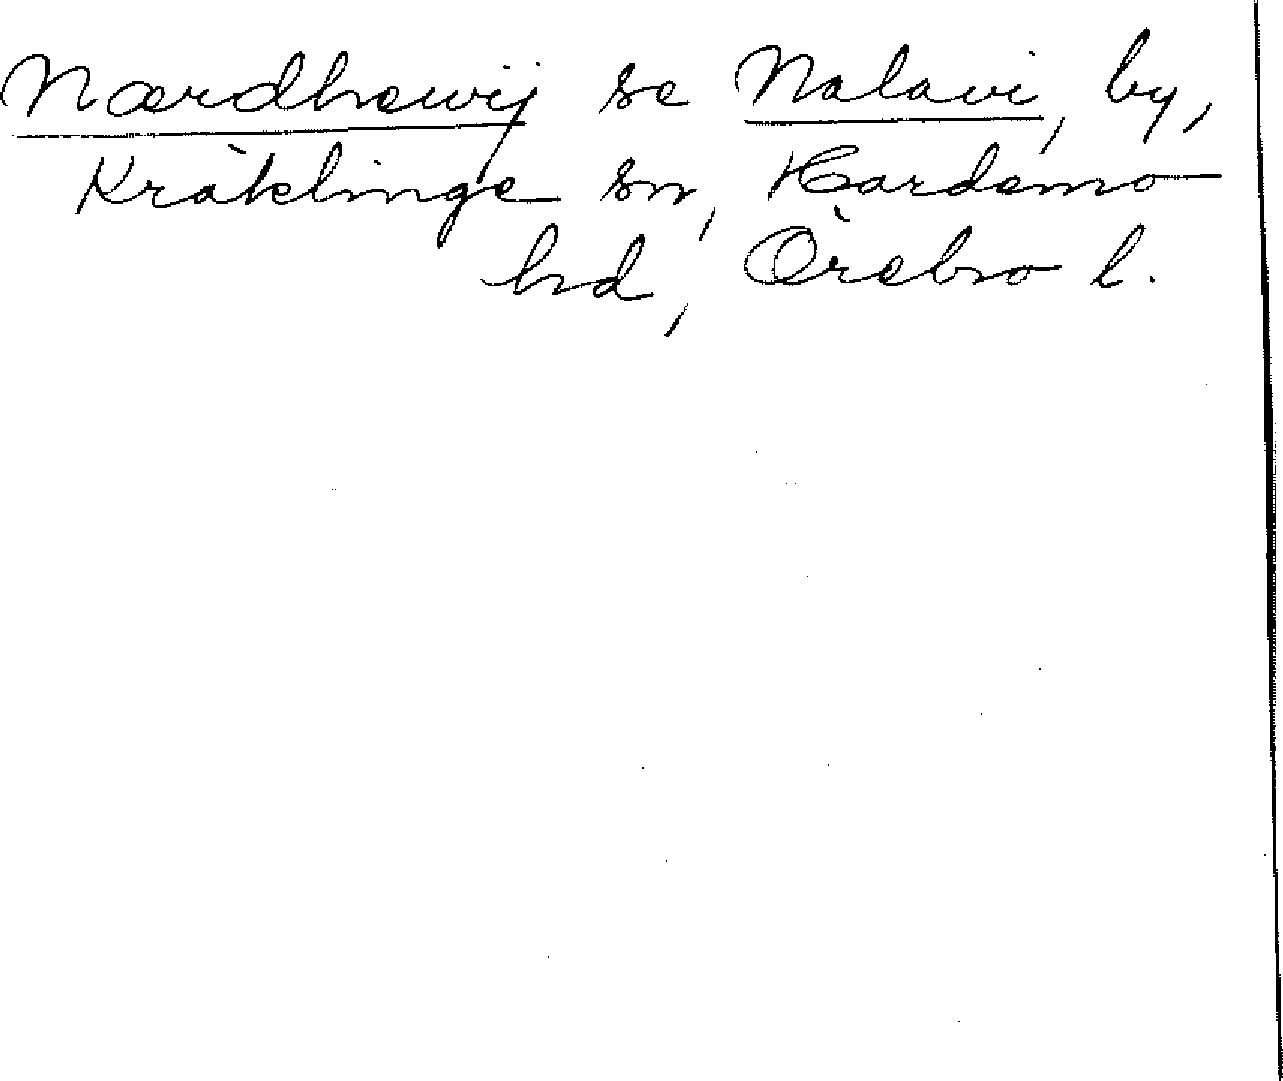 Nærdhewij se Nalavi, by,
Kräklinge sn, Hardemo
hd, Örebro l.